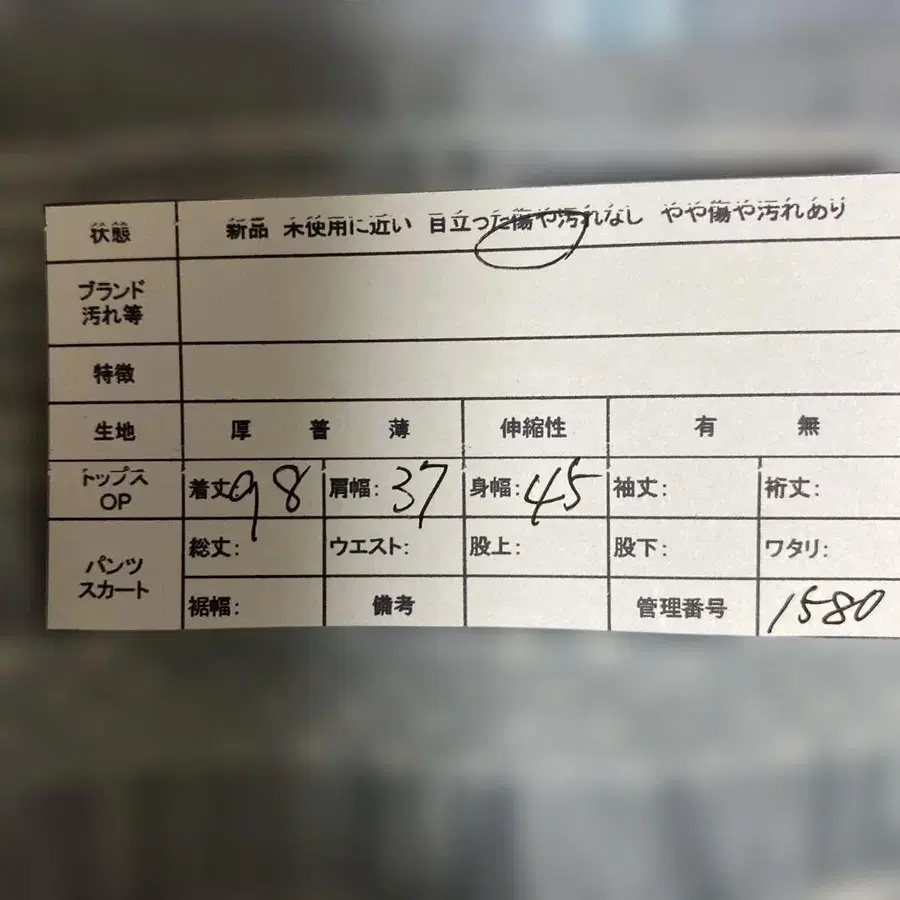 状態 新品 未使用に近い 目立った傷や汚れなし やや傷や汚れあり
ブランド
汚れ等
特徴
生地 厚 普 薄 伸縮性 有 無
トップス
OP
着丈 98 肩幅: 37 身幅: 45 袖丈: 裄丈:
パンツ
スカート
総丈: ウエスト: 股上: 股下: ワタリ:
裾幅: 備考 管理番号 1580